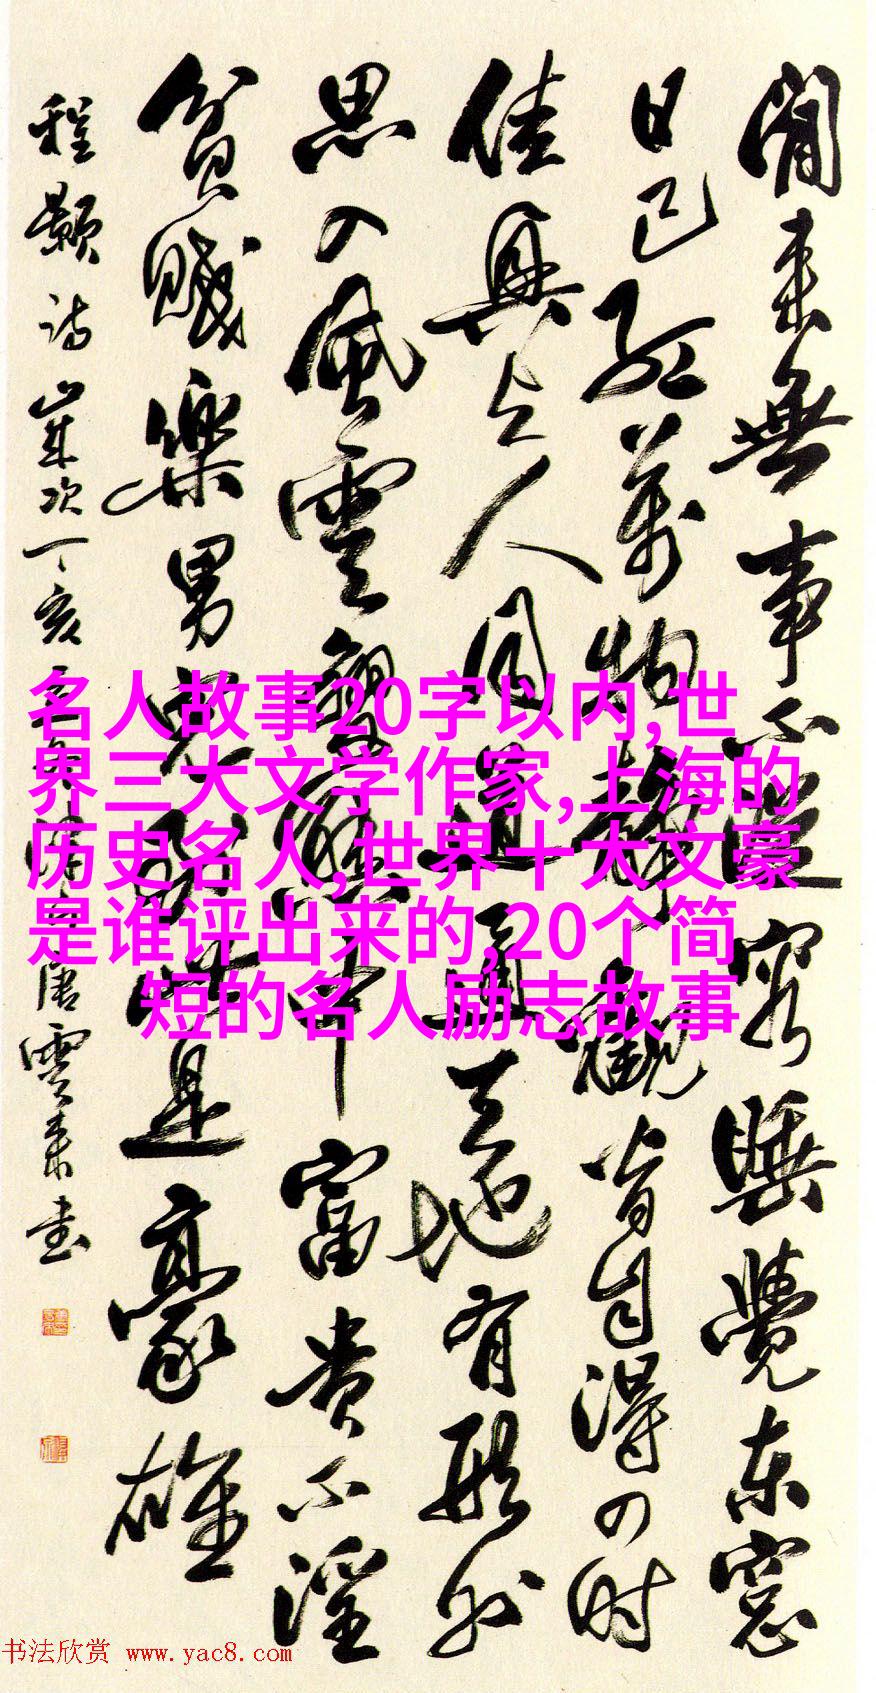 閒来無事不從容睡覺东窓
日已红萬物静觀皆自得四时
佳興与人同道通天地有形外
思入風雲變態中富贵不淫
貧賤樂男兒到此是豪雄
程颢诗歲次丁亥唐雲来书
名人故事20字以内,世
界三大文学作家,上海的
历史名人,世界十大文豪
是谁评出来的,20个简
短的名人励志故事
书法欣赏 www.yac8.com